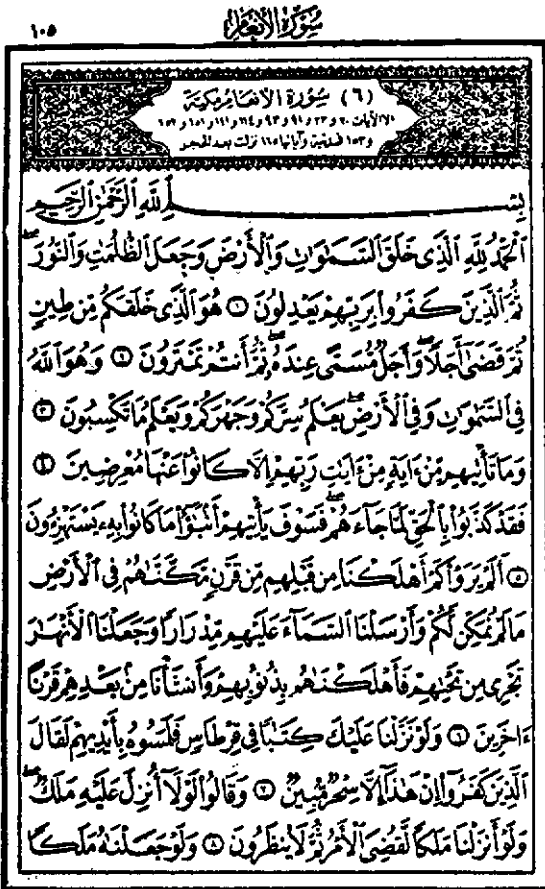 ١٠٥ سُورَةُ الأَنْعَامِ
(٦) سُورَةُ الأَنعَامِ مَكِّيَّة
إلا الآيات ٢٠ و ٢٣ و ٩١ و ٩٣ و ١١٤ و ١٤١ و ١٥١ و ١٥٢
و ١٥٣ فمدنية وآياتها ١٦٥ نزلت بعد الحجر
بِسْمِ ٱللَّهِ ٱلرَّحْمَٰنِ ٱلرَّحِيمِ
ٱلْحَمْدُ لِلَّهِ ٱلَّذِى خَلَقَ ٱلسَّمَٰوَٰتِ وَٱلْأَرْضَ وَجَعَلَ ٱلظُّلُمَٰتِ وَٱلنُّورَ ۖ
ثُمَّ ٱلَّذِينَ كَفَرُوا۟ بِرَبِّهِمْ يَعْدِلُونَ ١ هُوَ ٱلَّذِى خَلَقَكُم مِّن طِينٍ
ثُمَّ قَضَىٰٓ أَجَلًا ۖ وَأَجَلٌ مُّسَمًّى عِندَهُۥ ۖ ثُمَّ أَنتُمْ تَمْتَرُونَ ٢ وَهُوَ ٱللَّهُ
فِى ٱلسَّمَٰوَٰتِ وَفِى ٱلْأَرْضِ ۖ يَعْلَمُ سِرَّكُمْ وَجَهْرَكُمْ وَيَعْلَمُ مَا تَكْسِبُونَ ٣
وَمَا تَأْتِيهِم مِّنْ ءَايَةٍ مِّنْ ءَايَٰتِ رَبِّهِمْ إِلَّا كَانُوا۟ عَنْهَا مُعْرِضِينَ ٤
فَقَدْ كَذَّبُوا۟ بِٱلْحَقِّ لَمَّا جَآءَهُمْ ۖ فَسَوْفَ يَأْتِيهِمْ أَنۢبَٰٓؤُا۟ مَا كَانُوا۟ بِهِۦ يَسْتَهْزِءُونَ
٥ أَلَمْ يَرَوْا۟ كَمْ أَهْلَكْنَا مِن قَبْلِهِم مِّن قَرْنٍ مَّكَّنَّٰهُمْ فِى ٱلْأَرْضِ
مَا لَمْ نُمَكِّن لَّكُمْ وَأَرْسَلْنَا ٱلسَّمَآءَ عَلَيْهِم مِّدْرَارًا وَجَعَلْنَا ٱلْأَنْهَٰرَ
تَجْرِى مِن تَحْتِهِمْ فَأَهْلَكْنَٰهُم بِذُنُوبِهِمْ وَأَنشَأْنَا مِنۢ بَعْدِهِمْ قَرْنًا
ءَاخَرِينَ ٦ وَلَوْ نَزَّلْنَا عَلَيْكَ كِتَٰبًا فِى قِرْطَاسٍ فَلَمَسُوهُ بِأَيْدِيهِمْ لَقَالَ
ٱلَّذِينَ كَفَرُوٓا۟ إِنْ هَٰذَآ إِلَّا سِحْرٌ مُّبِينٌ ٧ وَقَالُوا۟ لَوْلَآ أُنزِلَ عَلَيْهِ مَلَكٌ ۖ
وَلَوْ أَنزَلْنَا مَلَكًا لَّقُضِىَ ٱلْأَمْرُ ثُمَّ لَا يُنظَرُونَ ٨ وَلَوْ جَعَلْنَٰهُ مَلَكًا